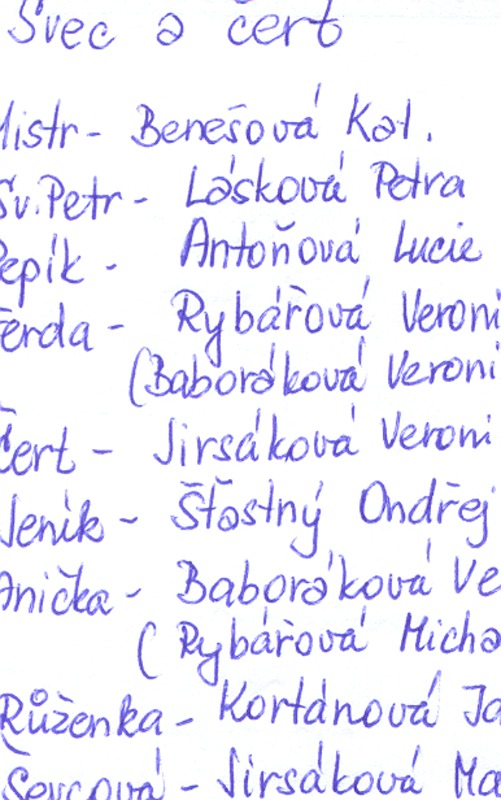 Švec a čert
Mistr - Benešová Kat.
Sv. Petr - Lásková Petra
Pepík - Antoňová Lucie
Ferda - Rybářová Veroni
(Baboráková Veroni
Čert - Jirsáková Veroni
Jeník - Šťastný Ondřej
Anička - Baboráková Ve
( Rybářová Micha
Růženka - Kortánová Ja
Ševcová - Jirsáková Ma